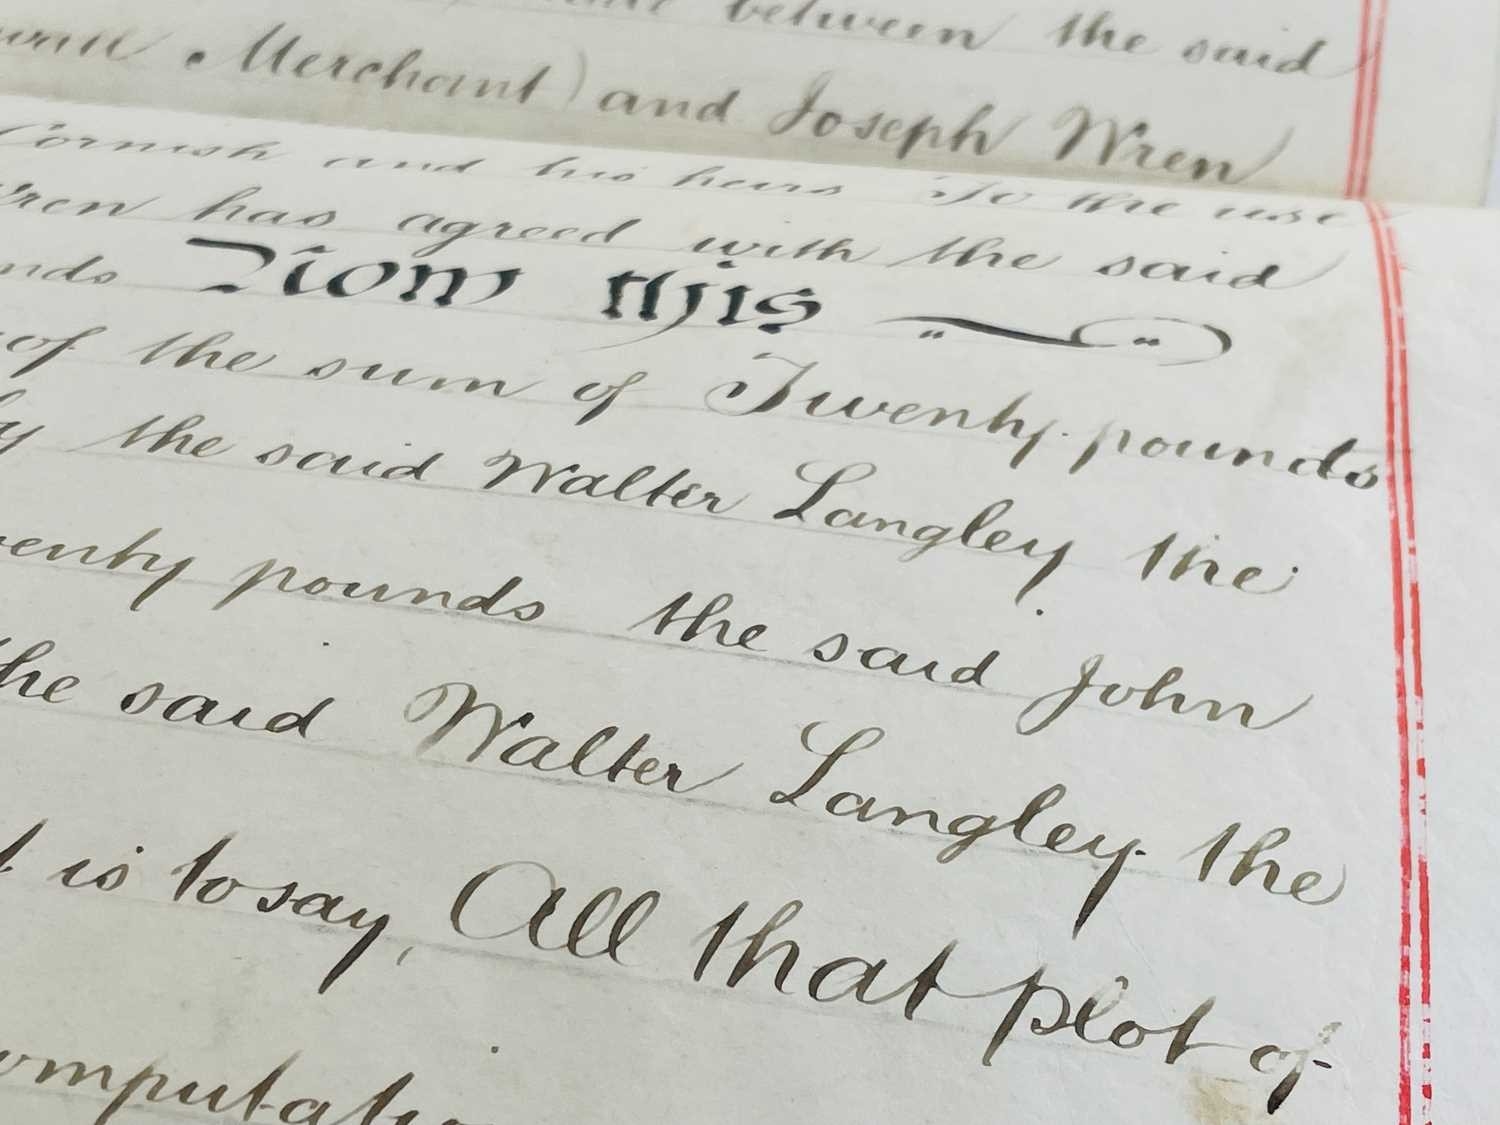 between the said
Merchant) and Joseph Wren
Cornish and his heirs To the use
Wren has agreed with the said
nds Now this
of the sum of Twenty pounds
by the said Walter Langley the
wenty pounds the said John
the said Walter Langley the
t is to say, All that plot of
omputatio